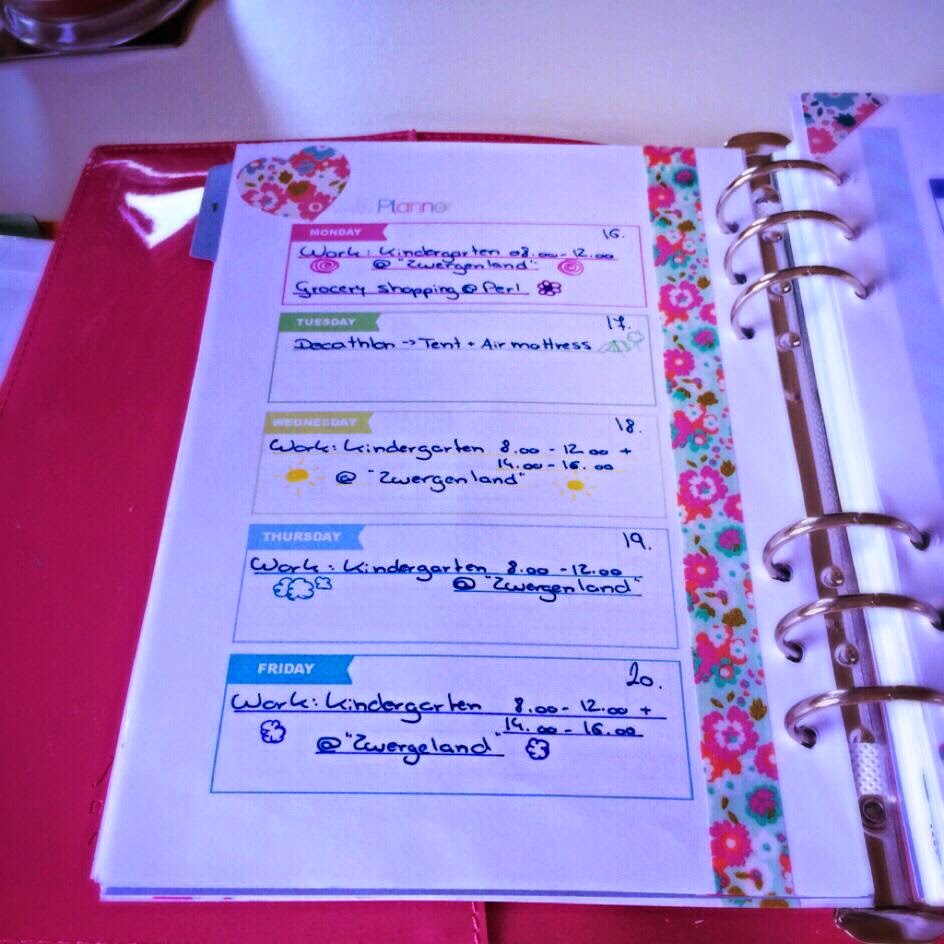 Planner
MONDAY
16.
Work: Kindergarten 08.00-12.00
@ "Zwergenland"
Grocery shopping @ Perl
TUESDAY
17.
Decathlon -> Tent + Air mattress
WEDNESDAY
18.
Work: Kindergarten 8.00 - 12.00 +
14.00 - 16.00
@ "Zwergenland"
THURSDAY
19.
Work: Kindergarten 8.00 - 12.00
@ "Zwergenland"
FRIDAY
20.
Work: Kindergarten 8.00 - 12.00 +
14.00 - 16.00
@ "Zwergeland"